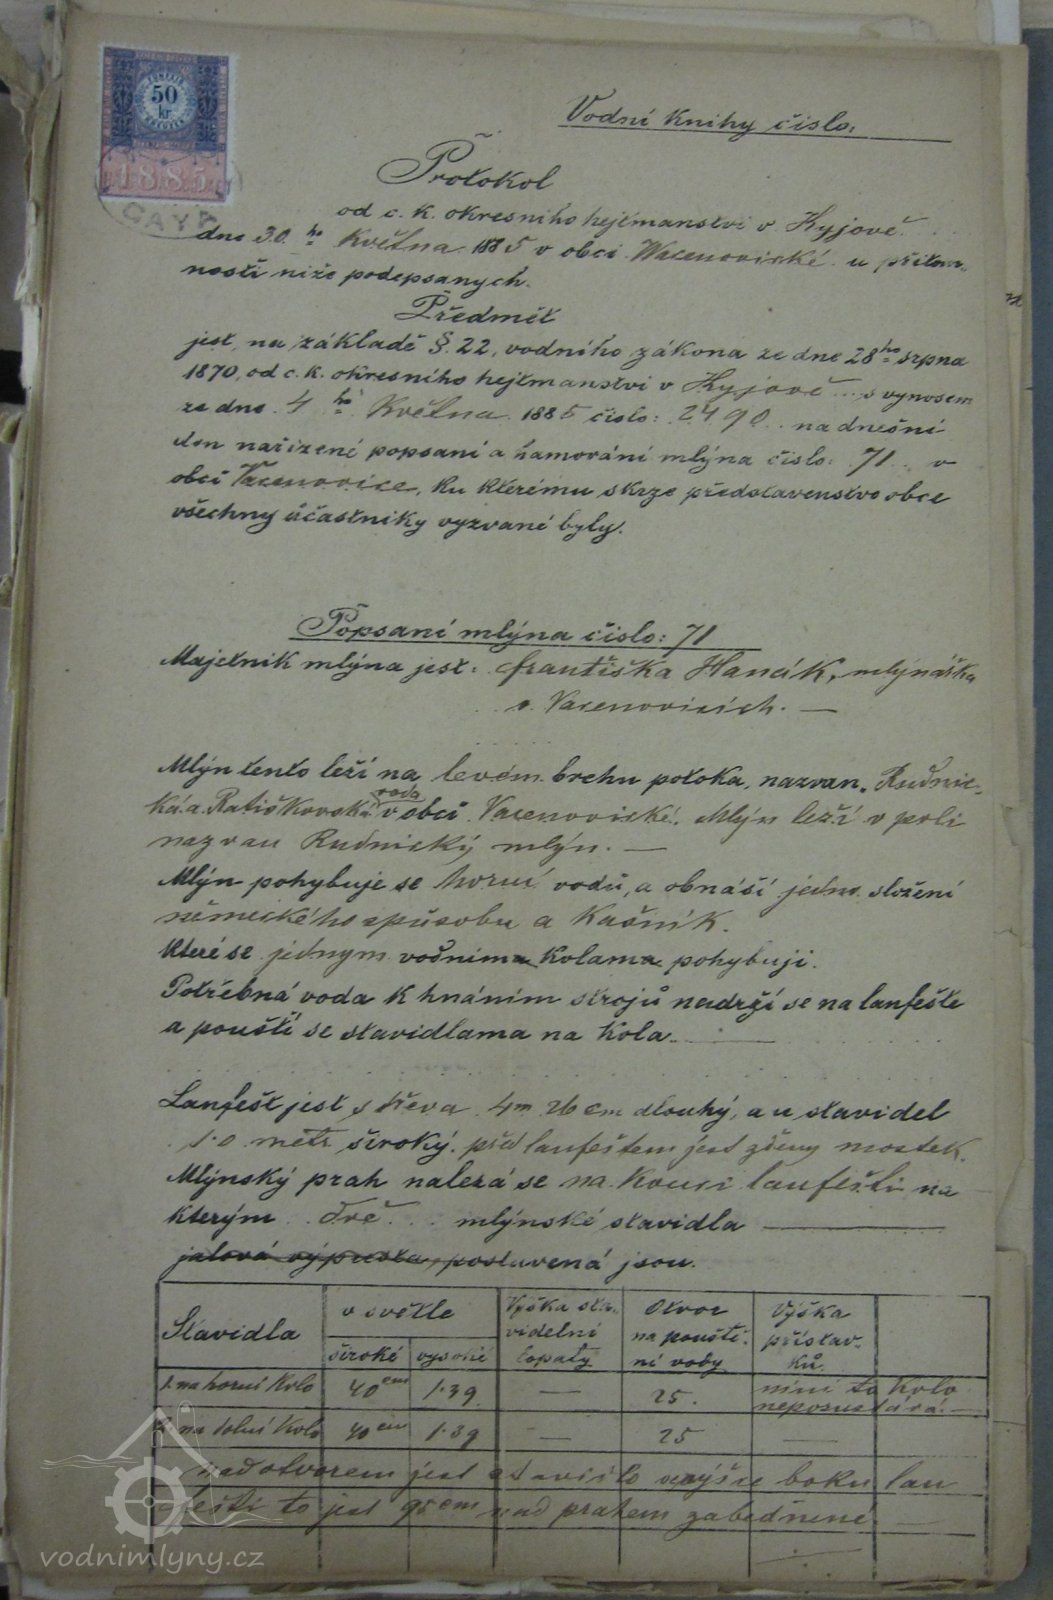 50
kr.
1885
GAYA
Vodní Knihy čislo:
Protokol
od c. k. okresniho hejtmanstvi v Kyjově
dne 30. ho Května 1885 v obci Wacenovické u přitom-
nosti niže podepsanych.
Předmět
jest, na základě §. 22, vodniho zákona ze dne 28ho srpna
1870, od c. k. okresniho hejtmanstvi v Kyjově s vynosem
ze dne 4 ho Května 1885 čislo: 2490 na dnešni
den nařizené popsani a hamováni mlýna čislo: 71 v
obci Vacenovice, ku kterému skrze představenstvo obce
všechny účastniky vyzvané byly.
Popsani mlýna čislo: 71
Majetnik mlýna jest: Františka Hanák, mlynářka
v Vacenovicich. —
Mlýn tento leži na levém brehu potoka, nazvan. Rudnic-
ká a Ratiškovská voda v obci Vacenovické. Mlýn leži v poli
nazvan Rudnický mlýn. —
Mlýn pohybuje se horni vodů, a obnáši jedno složeni
německého spůsobu a Kašnik.
které se jednym vodnima kolama pohybuji.
Potřebná voda k hnánim strojů nadrži se na lanfešte
a pouští se stavidlama na kola.
Lanfešt jest z dřeva 4m 26 cm dlouhý, a u stavidel
1.0 metr široký. před lanfeštem jest zděny mostek.
Mlýnský prah nalezá se na konci lanfešti na
kterým dvě mlýnské stavidla
jalová výpusta, postavená jsou.
Stavidla
v světle
široké
vysoké
Výška sta-
videlni
lopaty
Otvor
na poušti-
ni vody
Výška
přistav-
ků.
1. na horni Kolo
40 cm
1.39
—
25.
nini to kolo
nepozustává.—
2. na dolni Kolo
40 cm
1.39
—
25
—
nad otvorem jest stavidlo navýšce boku lan
fešti to jest 95 cm nad prahem zabedněné —
vodnimlyny.cz